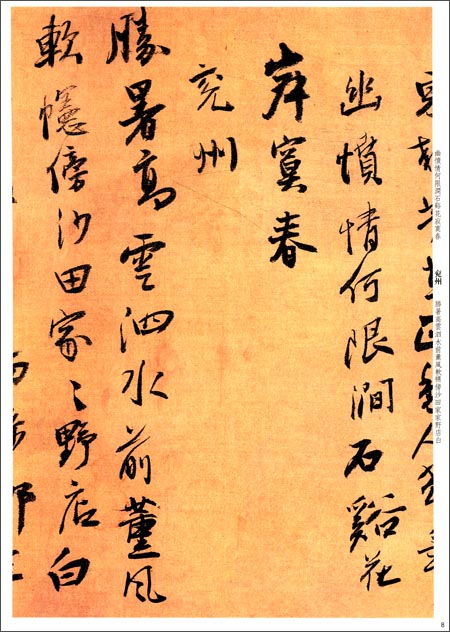 幽憤情何限澗石谿花寂寞春　兗州　勝暑高雲泗水前薰風軟幰傍沙田家家野店白
幽憤情何限澗石谿花
寂寞春
兗州
勝暑高雲泗水前薰風
軟幰傍沙田家〻野店白
8